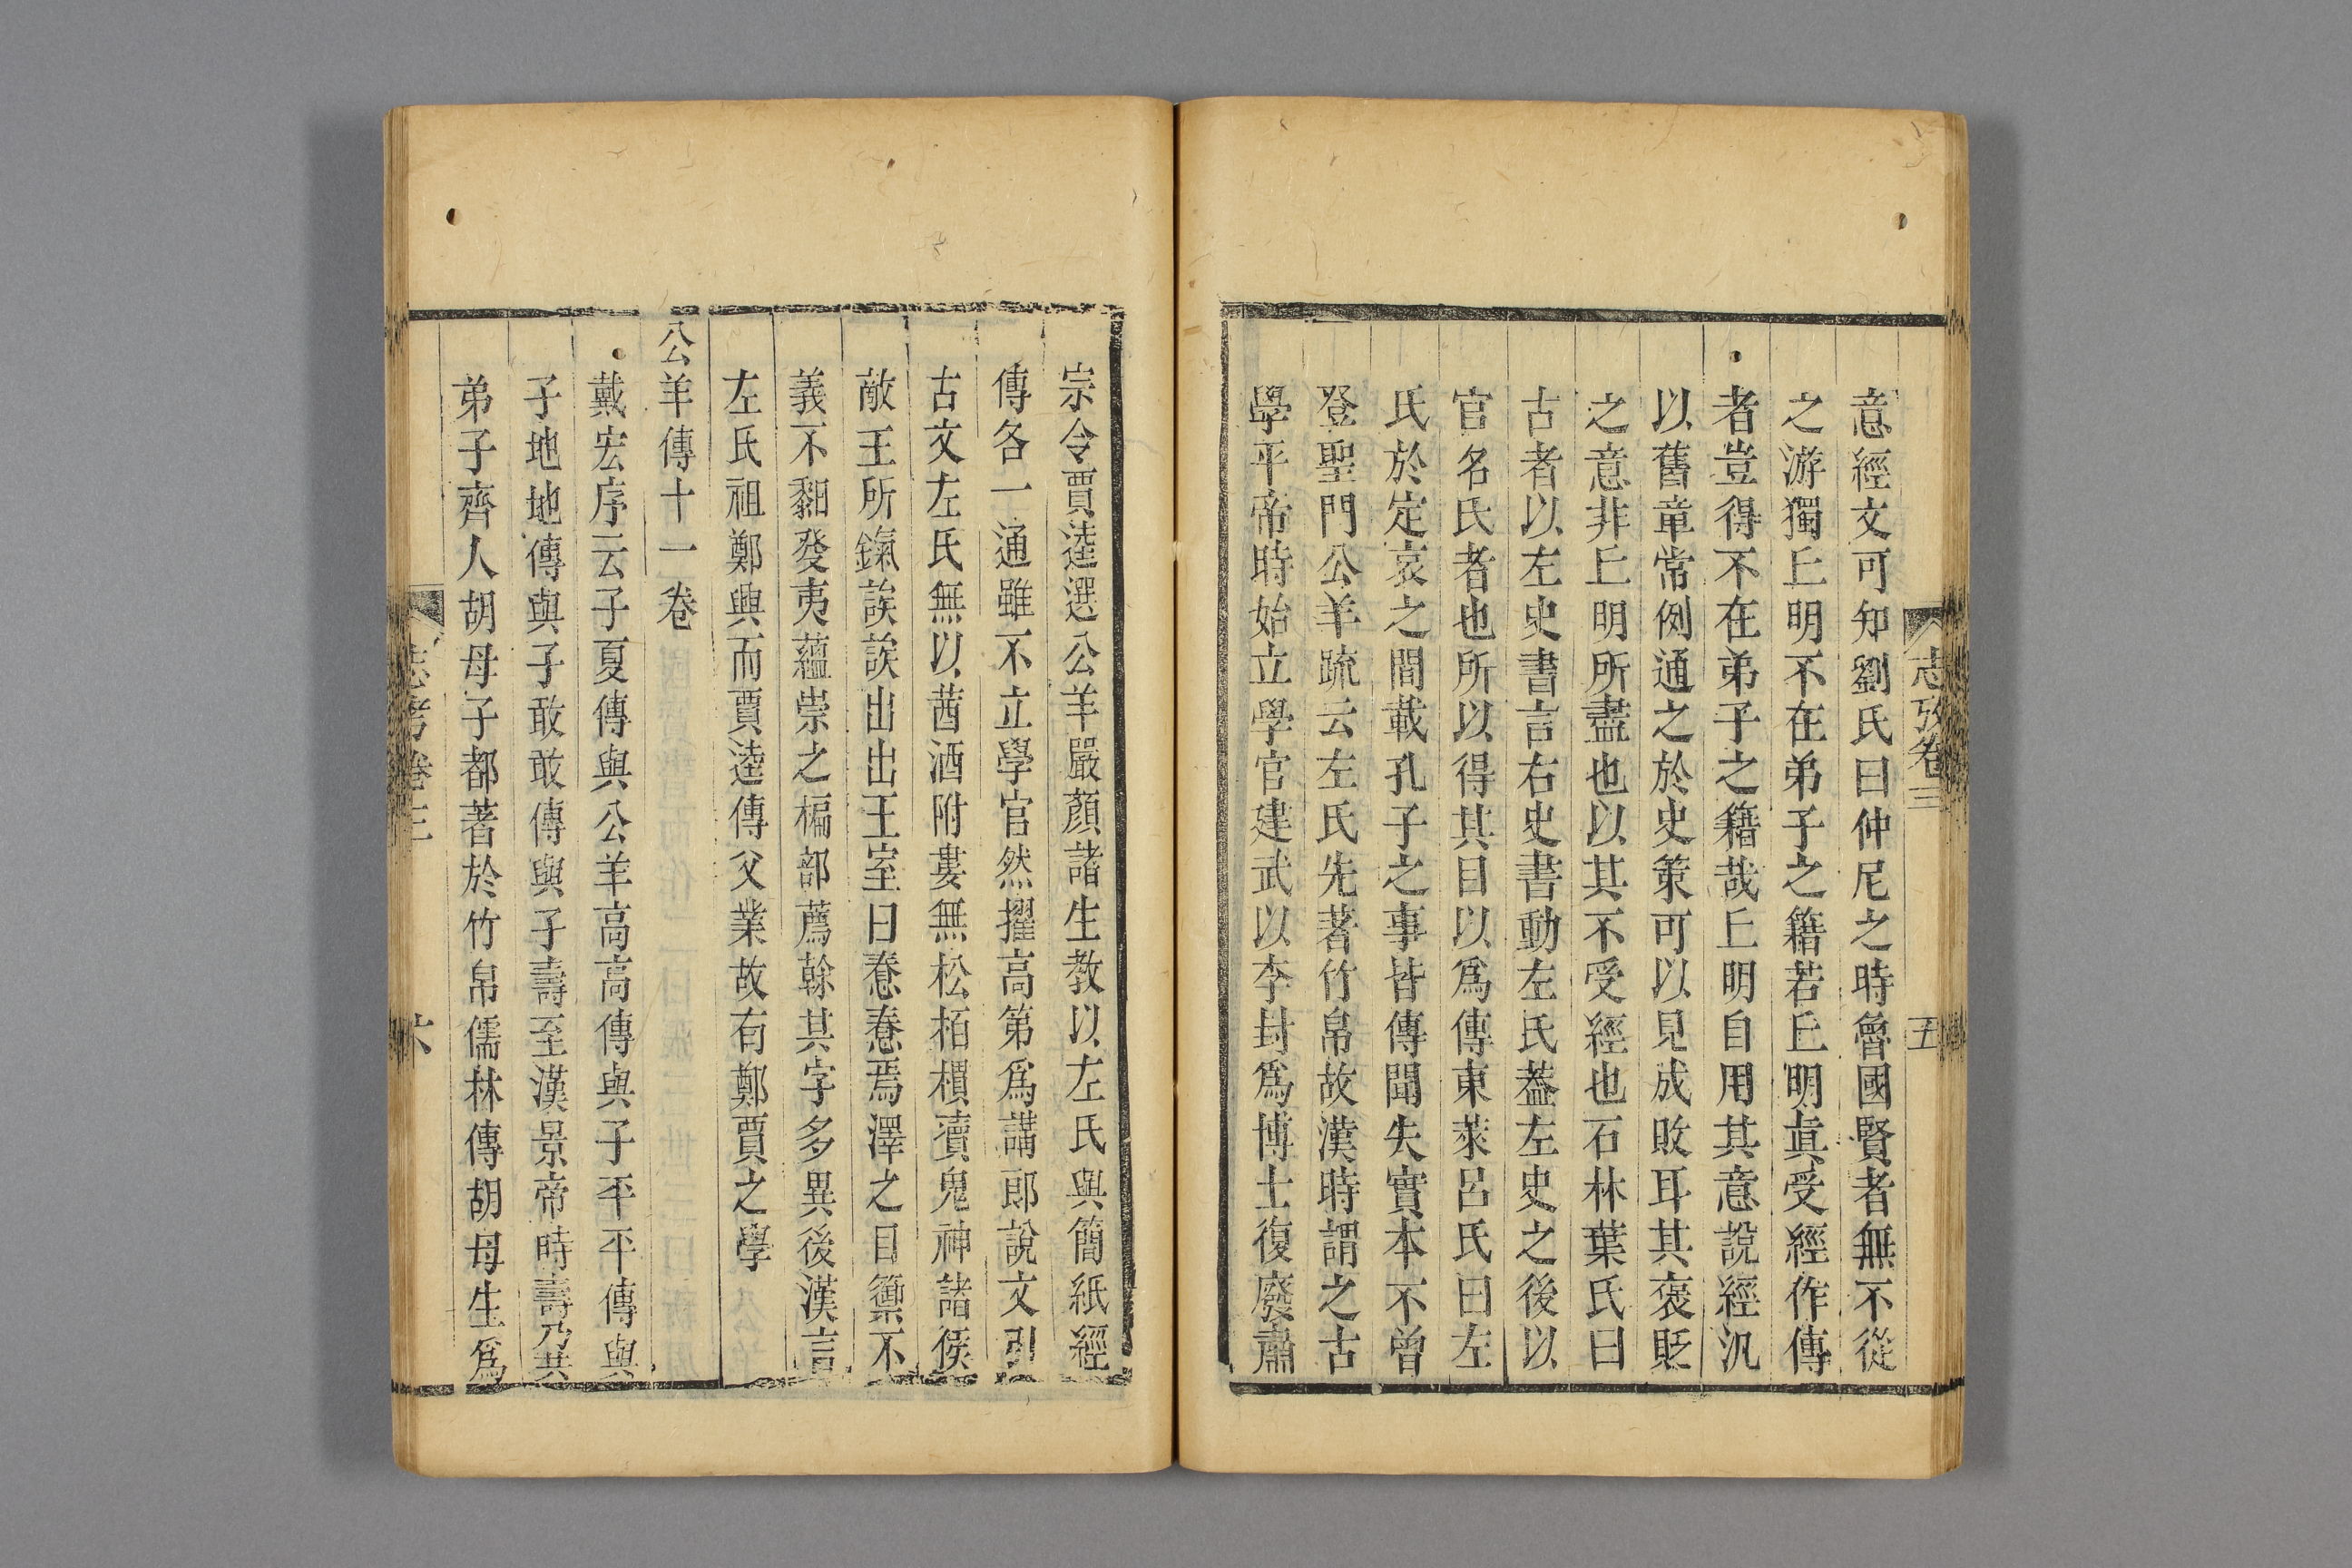 志攷卷三
五
意經文可知劉氏曰仲尼之時魯國賢者無不從
之游獨丘明不在弟子之籍若丘明眞受經作傳
者豈得不在弟子之籍哉丘明自用其意說經汎
以舊章常例通之於史策可以見成敗耳其褒貶
之意非丘明所盡也以其不受經也石林葉氏曰
古者以左史書言右史書動左氏蓋左史之後以
官名氏者也所以得其目以爲傳東萊呂氏曰左
氏於定哀之間載孔子之事皆傳聞失實本不曾
登聖門公羊疏云左氏先著竹帛故漢時謂之古
學平帝時始立學官建武以李封爲博士復廢肅
宗令賈逵選公羊嚴顏諸生教以左氏與簡紙經
傳各一通雖不立學官然擢高第爲講郎說文引
古文左氏無以茜酒附婁無松栢樻瀆鬼神諸侯
敵王所鎎誒誒出出王室曰惷惷焉澤之目籞不
義不䵑發夷蘊崇之楄部薦榦其字多異後漢言
左氏祖鄭興而賈逵傳父業故有鄭賈之學
公羊傳十一卷
戴宏序云子夏傳與公羊高高傳與子平平傳與
子地地傳與子敢敢傳與子壽至漢景帝時壽乃共
弟子齊人胡母子都著於竹帛儒林傳胡母生爲
志考卷三
六